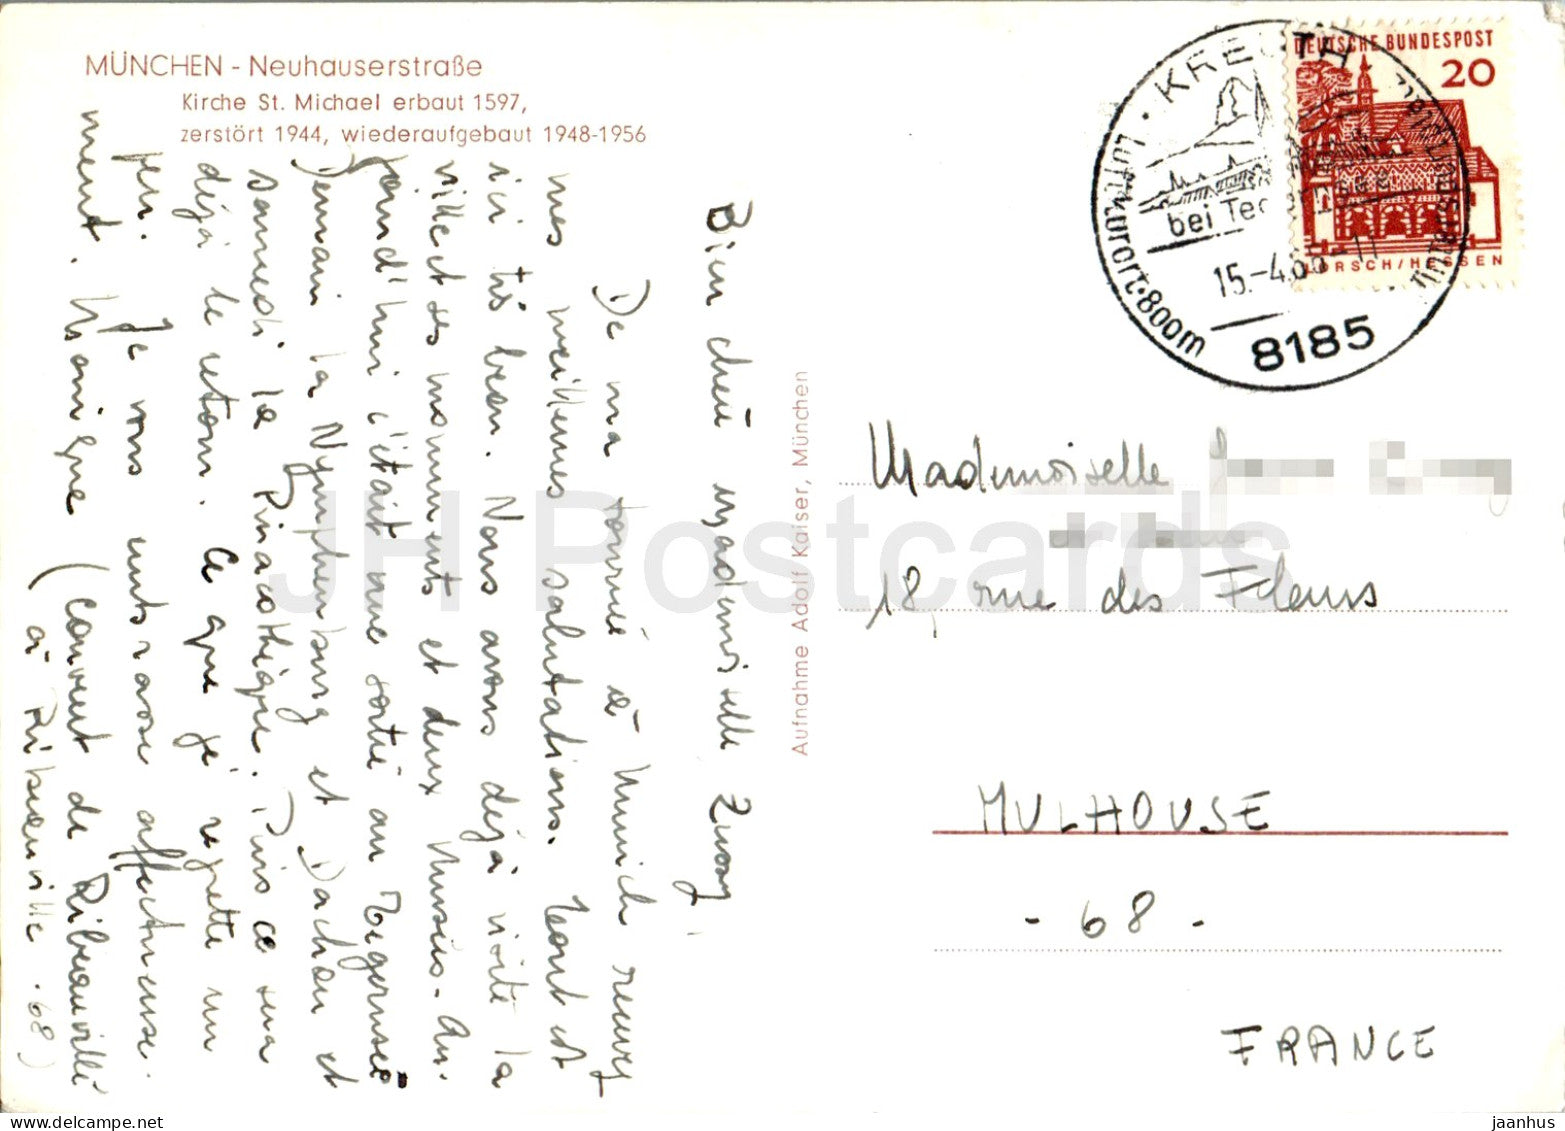 MÜNCHEN - Neuhauserstraße
Kirche St. Michael erbaut 1597,
zerstört 1944, wiederaufgebaut 1948-1956
Bien chère Mademoiselle Zussy,
De ma tournée à Munich recevez
mes meilleures salutations. Tout est
ici très beau. Nous avons déjà visité la
ville et ses monuments et deux Musées. Au-
jourd'hui c'était une sortie au Tegernsee
Demain la Nymphenburg et Dachau et
samedi la Pinacothèque. Puis ce sera
déjà le retour. Ce que je regrette un
peu. Je vous embrasse affectueuse-
ment. Monique (Couvent de Ribeauvillé
à Ribeauvillé. 68)
Aufnahme Adolf Kaiser, München
KREUTH
bei Tegernsee
Luftkurort · 800m
15.-4.66-11
8185
DEUTSCHE BUNDESPOST
20
LORSCH/HESSEN
Mademoiselle
18, rue des Fleurs
MULHOUSE
- 68 -
FRANCE
JH Postcards
jaanhus © www.delcampe.net